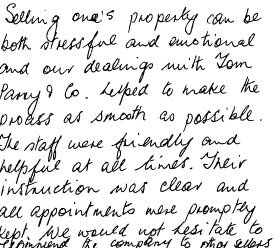 Selling one's property can be
both stressful and emotional
and our dealings with Tom
Parry & Co. helped to make the
process as smooth as possible.
The staff were friendly and
helpful at all times. Their
instruction was clear and
all appointments were promptly
kept. We would not hesitate to
recommend the company to other sellers